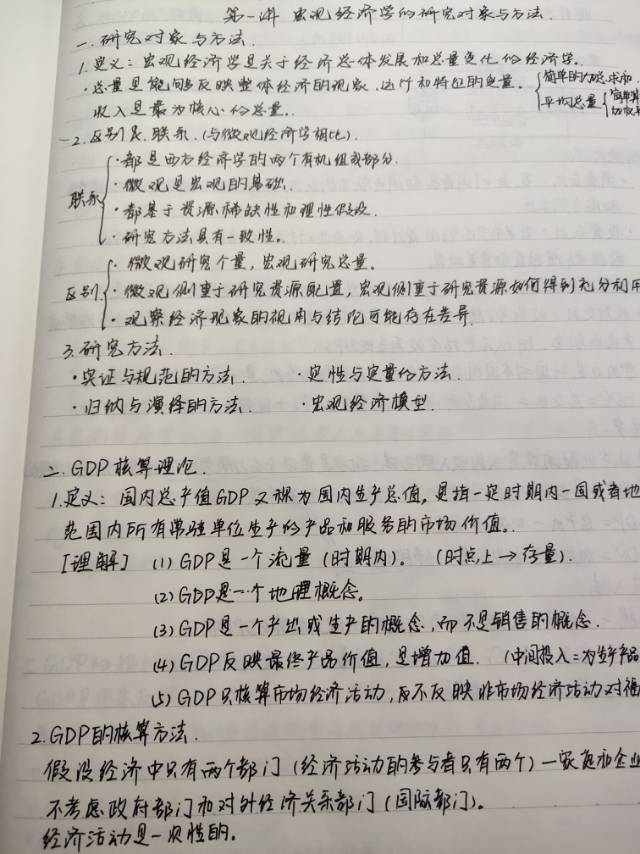 第一讲 宏观经济学的研究对象与方法.
一.研究对象与方法.
1.定义:宏观经济学是关于经济总体发展和总量变化的经济学.
·总量是能够反映整体经济的现象、运行和特征的变量. 简单的加总求和.
收入是最为核心的总量. 平均总量
2.区别与联系.(与微观经济学相比).
联系 ·都是西方经济学的两个有机组成部分.
·微观是宏观的基础.
·都基于资源稀缺性和理性假设.
·研究方法具有一致性。
区别 ·微观研究个量,宏观研究总量。
·微观侧重于研究资源配置,宏观侧重于研究资源如何得到充分利用
·观察经济现象的视角与结论可能存在差异.
3.研究方法.
·实证与规范的方法. ·定性与定量的方法.
·归纳与演绎的方法. ·宏观经济模型.
二.GDP核算理论.
1.定义:国内总产值GDP又称为国内生产总值,是指一定时期内一国或者地
范围内所有常驻单位生产的产品和服务的市场价值。
[理解] (1)GDP是一个流量(时期内)。(时点上→存量).
(2)GDP是一个地理概念。
(3)GDP是一个产出或生产的概念,而不是销售的概念.
(4)GDP反映最终产品价值,是增加值.(中间投入=为生产产品
(5)GDP只核算市场经济活动,反不反映非市场经济活动对福
2.GDP的核算方法.
假设经济中只有两个部门(经济活动的参与者只有两个)一家庭和企业
不考虑政府部门和对外经济关系部门(国际部门)。
经济活动是一次性的。